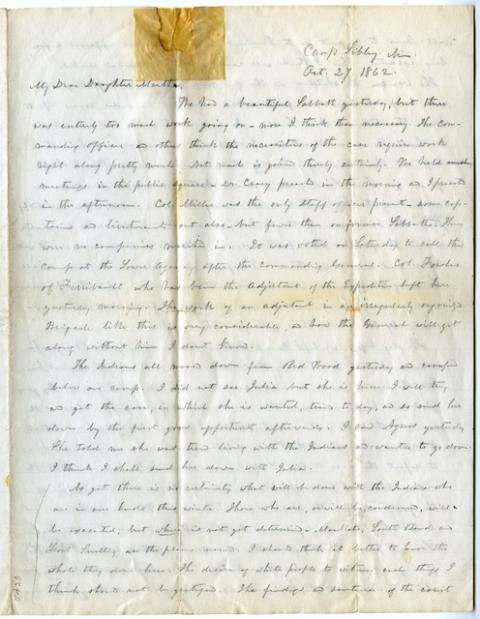 Camp Sibley Min.
Oct. 27, 1862.
My Dear Daughter Martha,
We had a beautiful Sabbath yesterday, but there
was entirely too much work going on – more I think than necessary. The com-
manding officer and others think the necessities of the case require work
right along pretty much but much is going thing entirely. We held
meetings in the public square – Dr. preached in the morning and I preached
in the afternoon. Col. Miller was the only staff officer present – some cap-
tains and lieutenants out also – but fewer than on former Sabbaths. There
were no companies marched in. It was voted on Saturday to call the
camp at the Lower Agency after the commanding General. Col. Fowler
of Faribault who has been the Adjutant of the Expedition left here
yesterday morning. The work of an adjutant in an irregularly organized
Brigade like this is very considerable, and how the General will get
along without him I don't know.
The Indians all moved down from Red Wood yesterday and camped
below our camp. I did not see Julia but she is here. I will try
and get the case, in which she is wanted, tried to day, and so send her
down by the first good opportunity afterwards. I saw Agnes yesterday
She told me she was tired living with the Indians and wanted to go down.
I think I shall send her down with Julia.
As yet there is no certainty what will be done with the Indians who
are in our hands this winter. Those who are, or will be, condemned, will
be executed, but where is not yet determined. Mankato, South Bend and
Fort Snelling are the places named. I should think it better to have the
whole thing done here. The desire of white people to witness such things I
think should not be gratified. The findings and sentences of the court